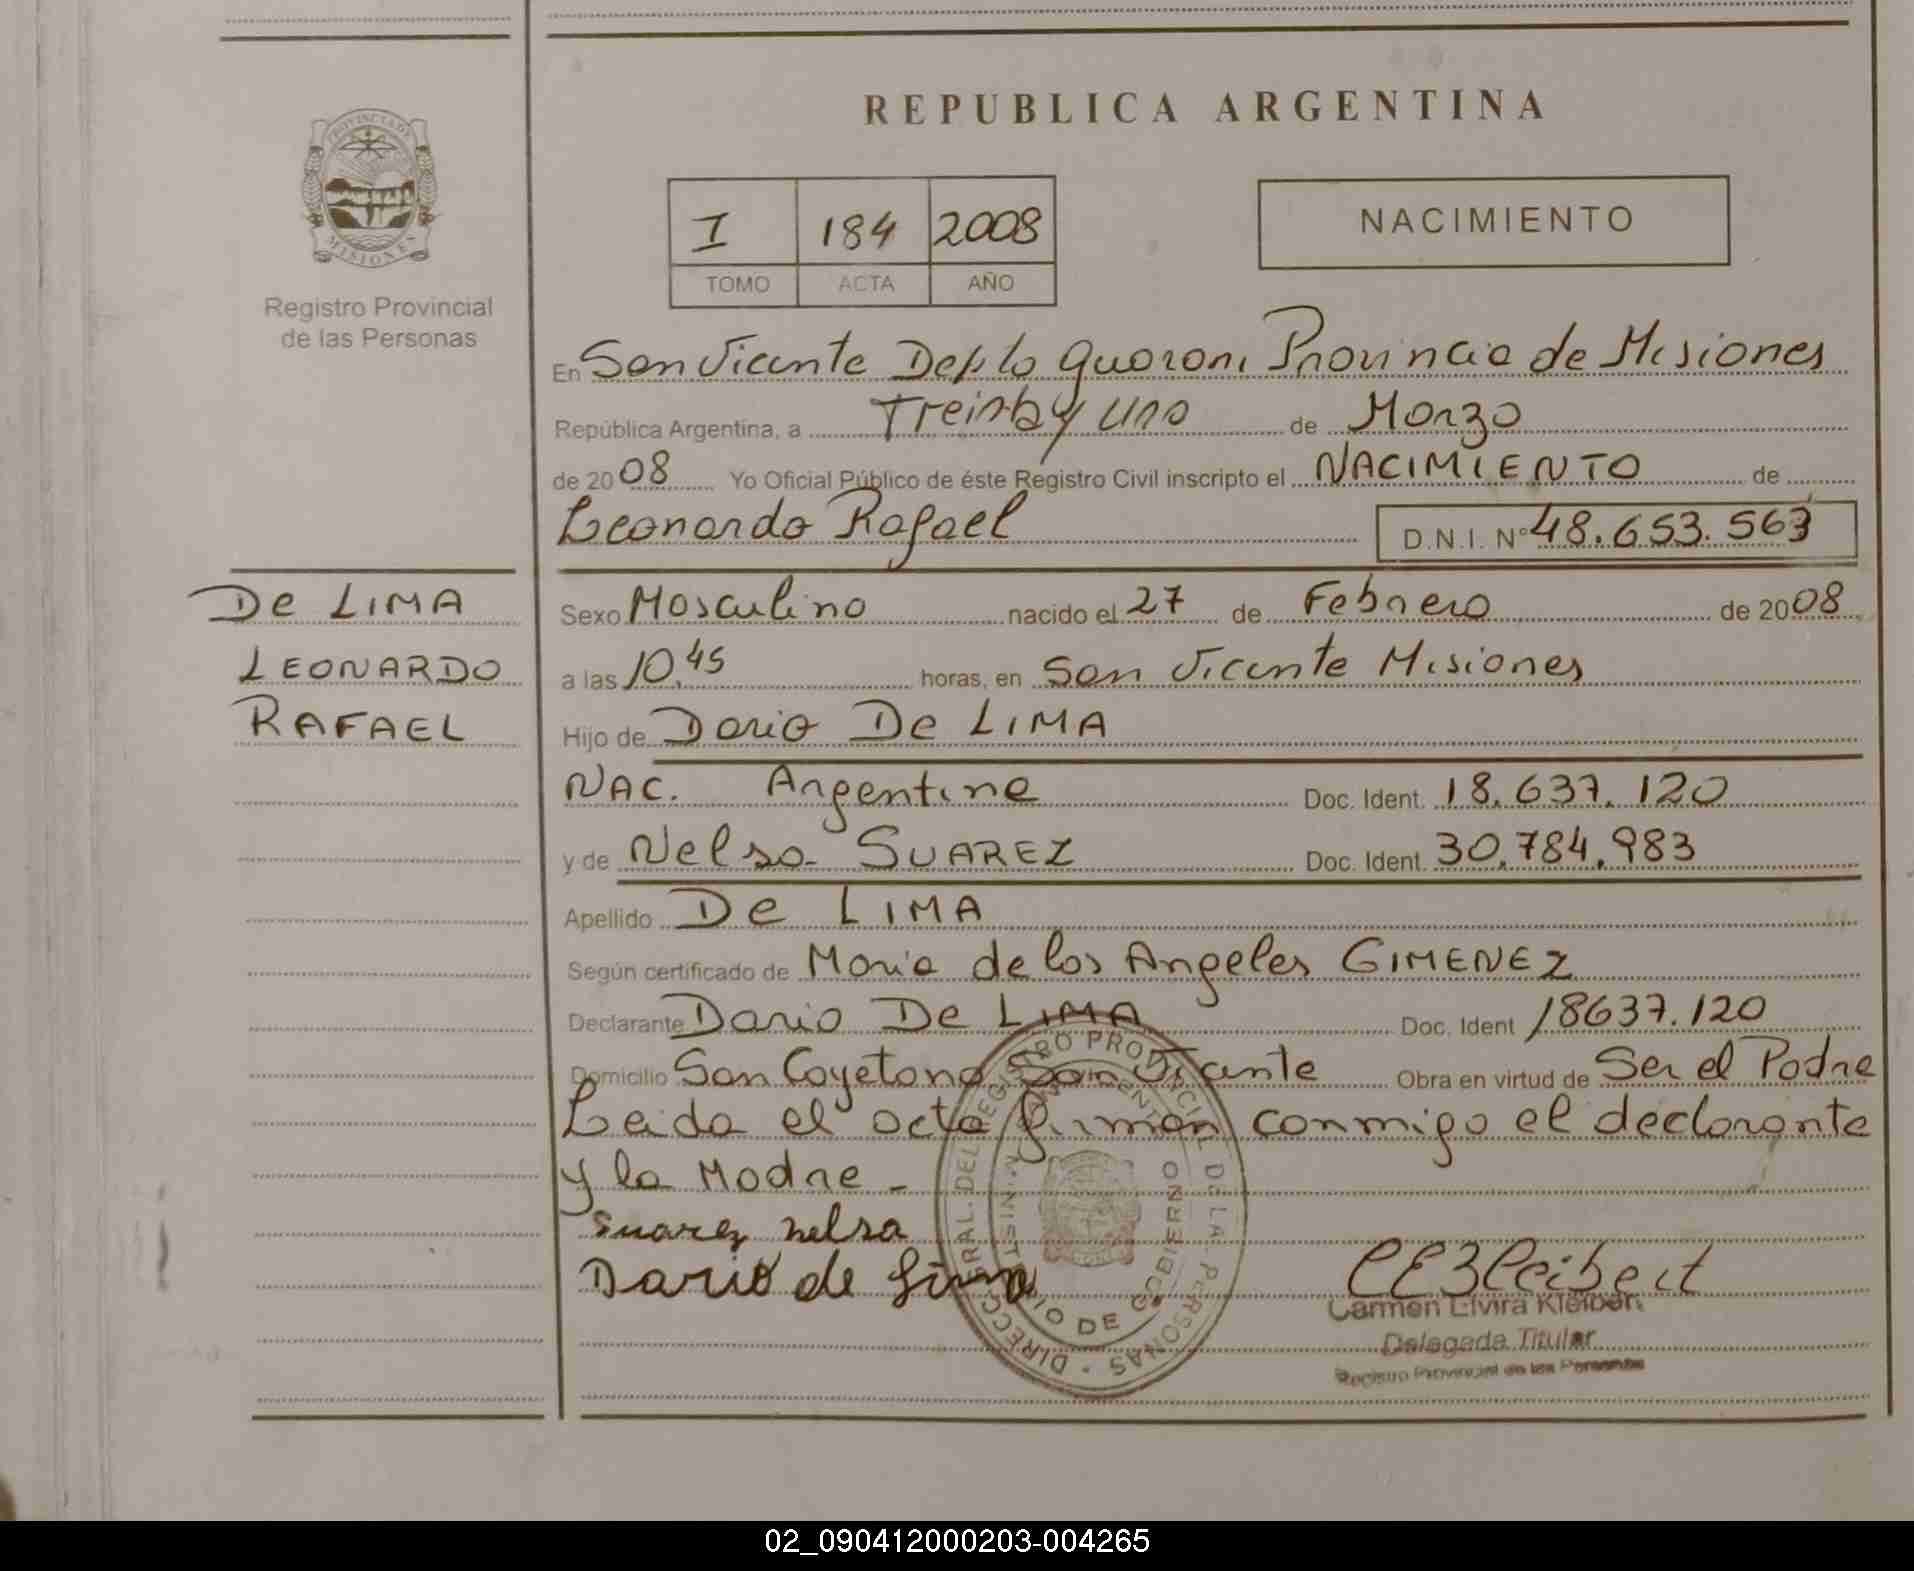 REPUBLICA ARGENTINA
PROVINCIA DE
MISIONES
Registro Provincial
de las Personas
I 184 2008
TOMO ACTA AÑO
NACIMIENTO
En San Vicente Depto Guarani Provincia de Misiones
República Argentina, a Treinta y uno de Marzo
de 2008 Yo Oficial Público de éste Registro Civil inscripto el NACIMIENTO de
Leonardo Rafael D.N.I. Nº 48.653.563
De LIMA
LEONARDO
RAFAEL
Sexo Masculino nacido el 27 de Febrero de 2008
a las 10,45 horas, en San Vicente Misiones
Hijo de Dario De LIMA
NAC. Argentina Doc. Ident. 18.637.120
y de Nelsa SUAREZ Doc. Ident. 30.784.983
Apellido De LIMA
Según certificado de Maria de los Angeles GIMENEZ
Declarante Dario De LIMA Doc. Ident 18637.120
Domicilio San Cayetano San Vicente Obra en virtud de Ser el Padre
Leida el acta firman conmigo el declarante
y la Madre -
Suarez nelsa
Dario de Lima
Carmen Elvira Kleibert
Delegada Titular
Registro Provincial de las Personas
DIRECC. GRAL. DEL REGISTRO PROVINCIAL DE LA. PERSONAS
MINISTERIO DE GOBIERNO
02_090412000203-004265